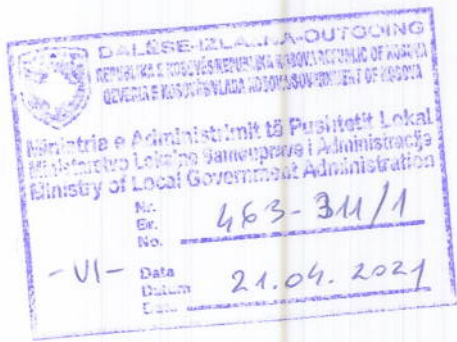 DALËSE-IZLAZNA-OUTGOING
REPUBLIKA E KOSOVËS/REPUBLIKA KOSOVA/REPUBLIC OF KOSOVA
QEVERIA E KOSOVËS/VLADA KOSOVA/GOVERNMENT OF KOSOVA
Ministria e Administrimit të Pushtetit Lokal
Ministarstvo Lokalne Samouprave i Administracije
Ministry of Local Government Administration
Nr.
Br.
No.
463-311/1
-VI-
Data
Datum
Date
21.04.2021